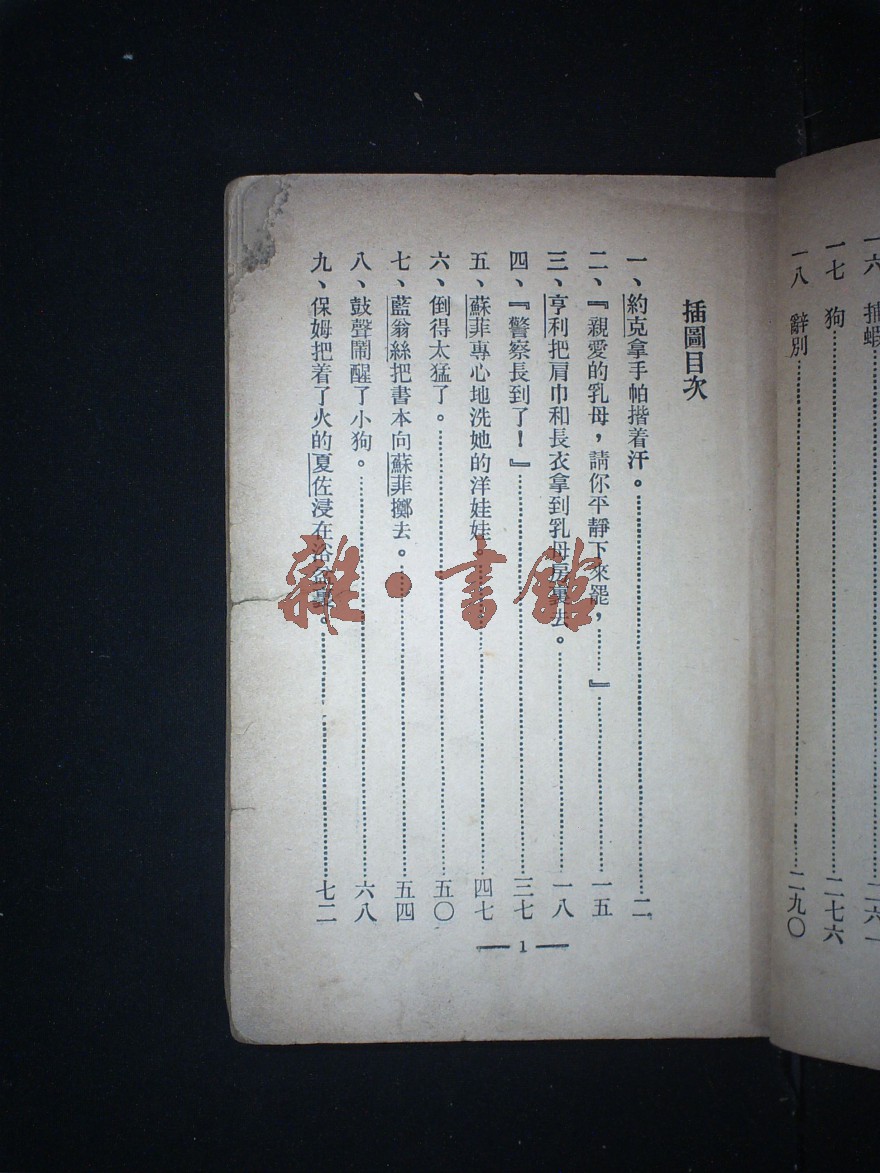 一六 捕蝦……二六一
一七 狗……二七六
一八 辭別……二九〇
插圖目次
一、約克拿手帕揩着汗。……二
二、『親愛的乳母，請你平靜下來罷，……』……一五
三、亨利把肩巾和長衣拿到乳母房裏去。……一八
四、『警察長到了！』……三七
五、蘇菲專心地洗她的洋娃娃。……四七
六、倒得太猛了。……五〇
七、藍翁絲把書本向蘇菲擲去。……五四
八、鼓聲鬧醒了小狗。……六八
九、保姆把着了火的夏佐浸在浴盆裏。……七二
— 1 —
雜·書館